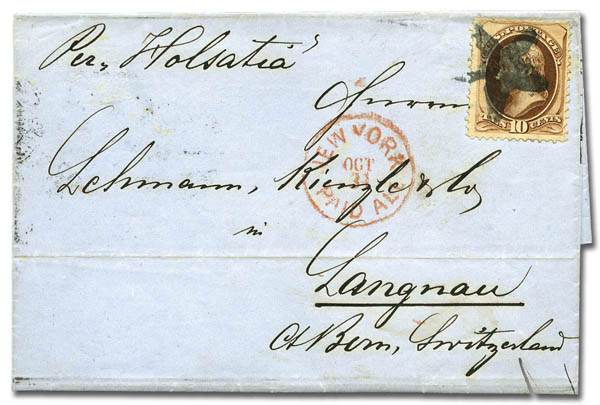 Per „Holsatia“
U.S. POSTAGE
Herren
10 CENTS
NEW YORK
OCT
31
PAID ALL
Lehmann, Kienzle & Co
in
Langnau
Ct Bern, Switzerland